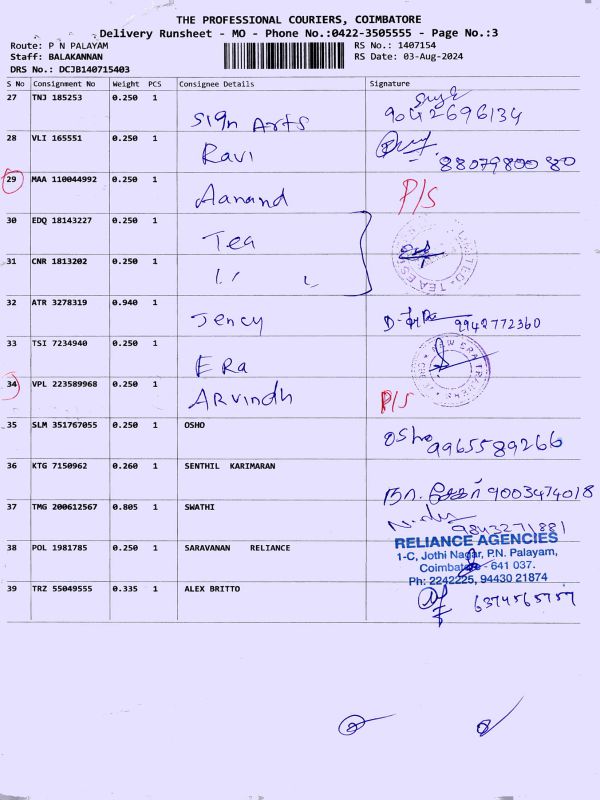 THE PROFESSIONAL COURIERS, COIMBATORE
Delivery Runsheet - MO - Phone No.:0422-3505555 - Page No.:3
Route: P N PALAYAM RS No.: 1407154
Staff: BALAKANNAN RS Date: 03-Aug-2024
DRS No.: DCJB140715403
S No Consignment No Weight PCS Consignee Details Signature
27 TNJ 185253 0.250 1 Sign Arts 9042696134
28 VLI 165551 0.250 1 Ravi 8807980080
29 MAA 110044992 0.250 1 Aanand P/S
30 EDQ 18143227 0.250 1 Tea
31 CNR 1813202 0.250 1
32 ATR 3278319 0.940 1 Jency 9942772360
33 TSI 7234940 0.250 1 ERa
34 VPL 223589968 0.250 1 Arvindh P/S
35 SLM 351767055 0.250 1 OSHO Osho 9965589266
36 KTG 7150962 0.260 1 SENTHIL KARIMARAN 9003474018
37 TMG 200612567 0.805 1 SWATHI 9843271881
38 POL 1981785 0.250 1 SARAVANAN RELIANCE RELIANCE AGENCIES
1-C, Jothi Nagar, P.N. Palayam,
Coimbatore - 641 037.
Ph: 2242225, 94430 21874
39 TRZ 55049555 0.335 1 ALEX BRITTO 6374565757